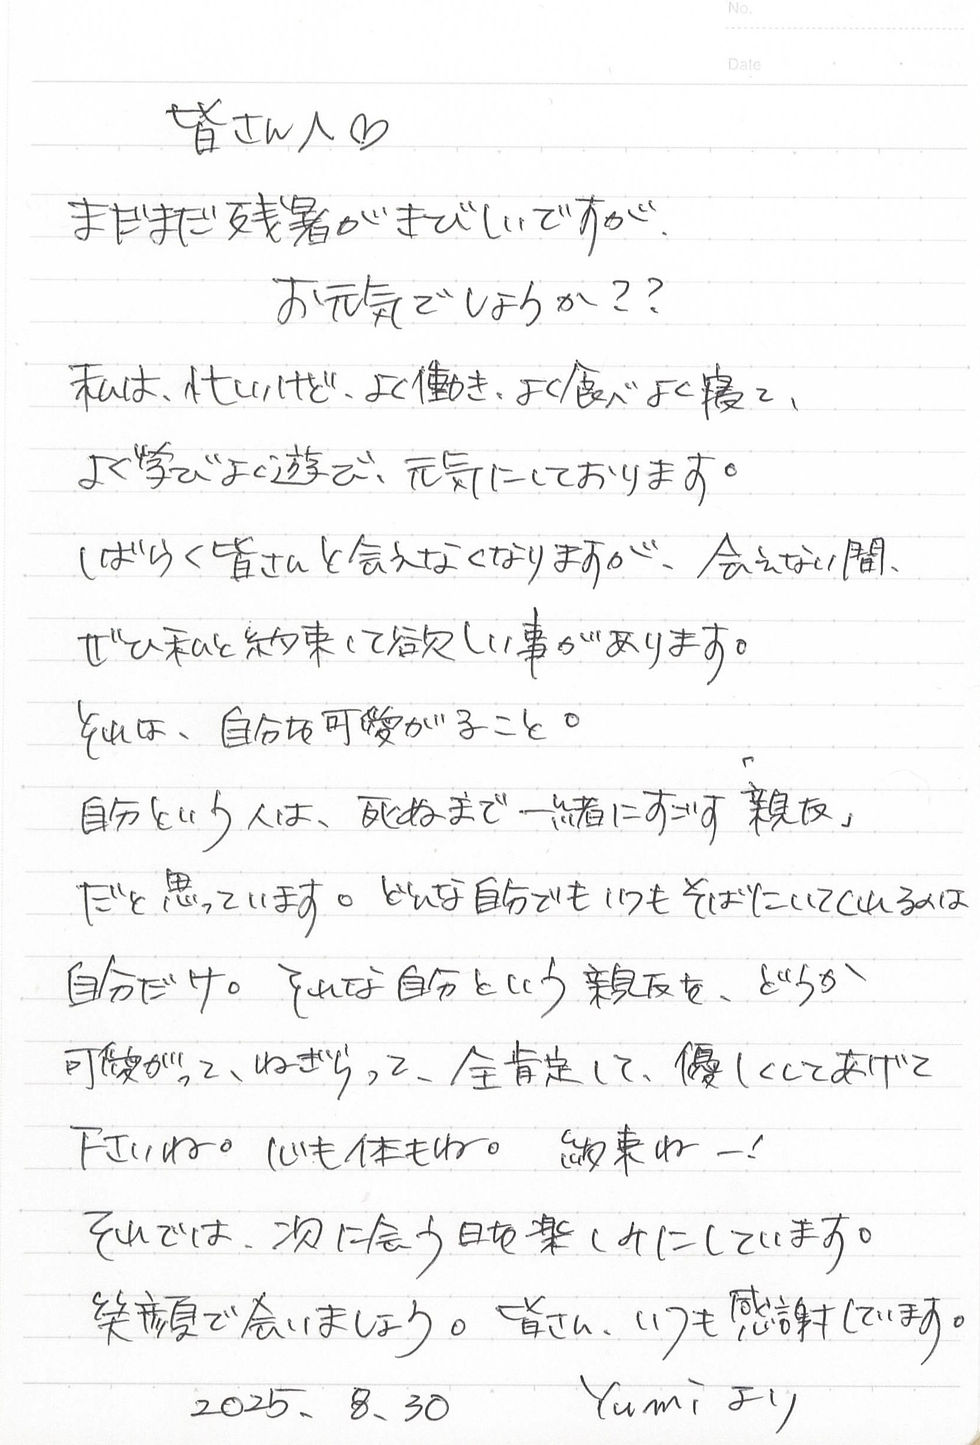 No.
Date
皆さんへ♡
まだまだ残暑がきびしいですが、
お元気でしょうか??
私は、忙しいけど、よく働き、よく食べよく寝て、
よく学びよく遊び、元気にしております。
しばらく皆さんと会えなくなりますが、会えない間、
ぜひ私と約束して欲しい事があります。
それは、自分を可愛がること。
自分という人は、死ぬまで一緒にすごす「親友」
だと思っています。どんな自分でもいつもそばにいてくれるのは
自分だけ。それな自分という親友を、どうか
可愛がって、ねぎらって、全肯定して、優しくしてあげて
下さいね。心も体もね。約束ねー!
それでは、次に会う日を楽しみにしています。
笑顔で会いましょう。皆さん、いつも感謝しています。
2025、8、30 Yumiより